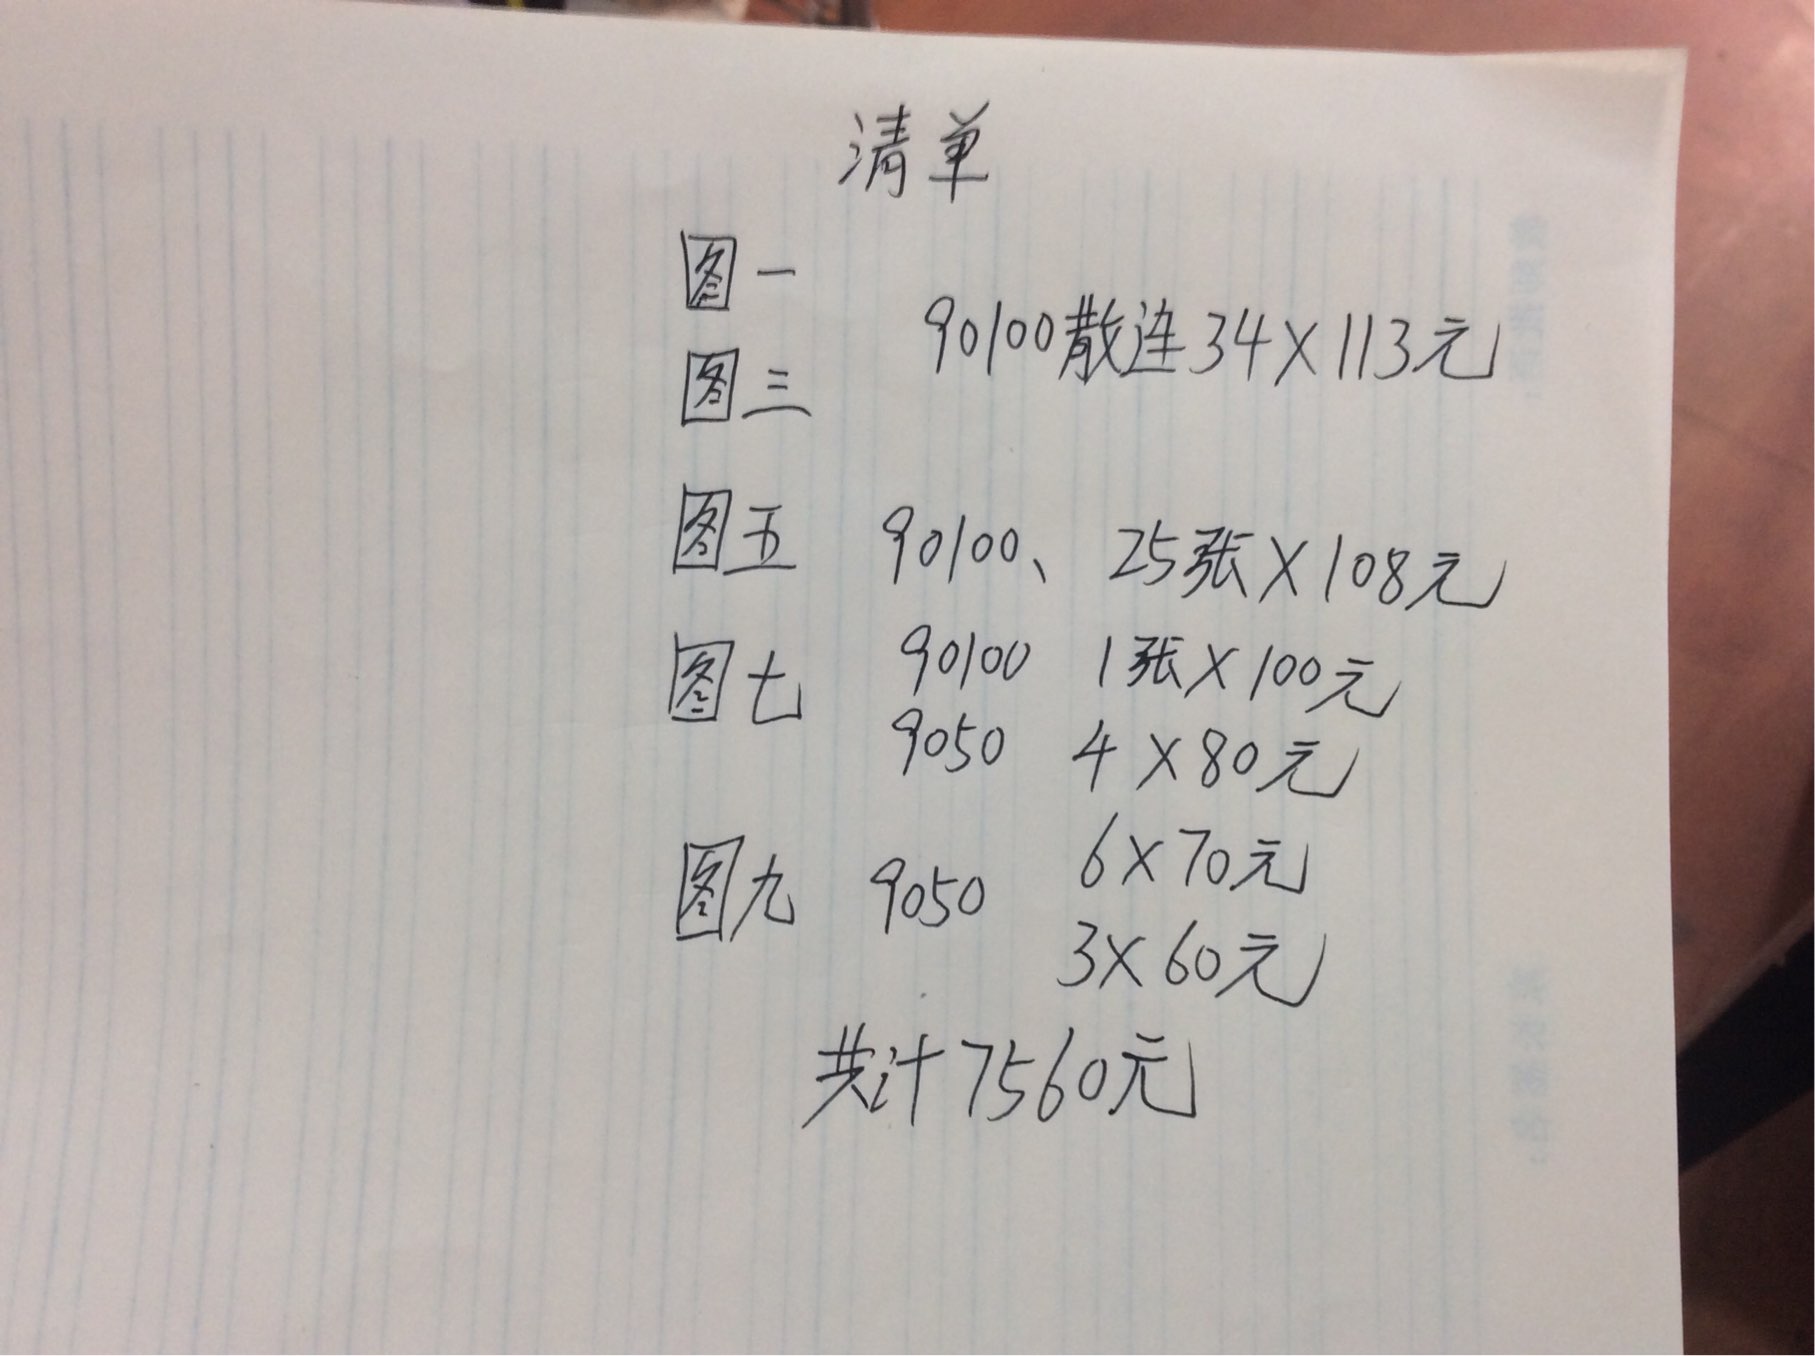 清单
图一
90100散连34X113元
图三
图五 90100、 25张X108元
图七 90100 1张X100元
9050 4X80元
6X70元
图九 9050
3X60元
共计7560元